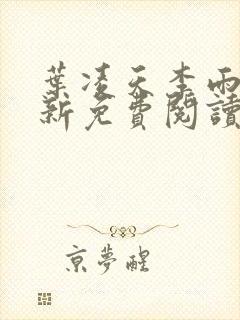 葉凌天李雨
新免費閱讀
京夢醒